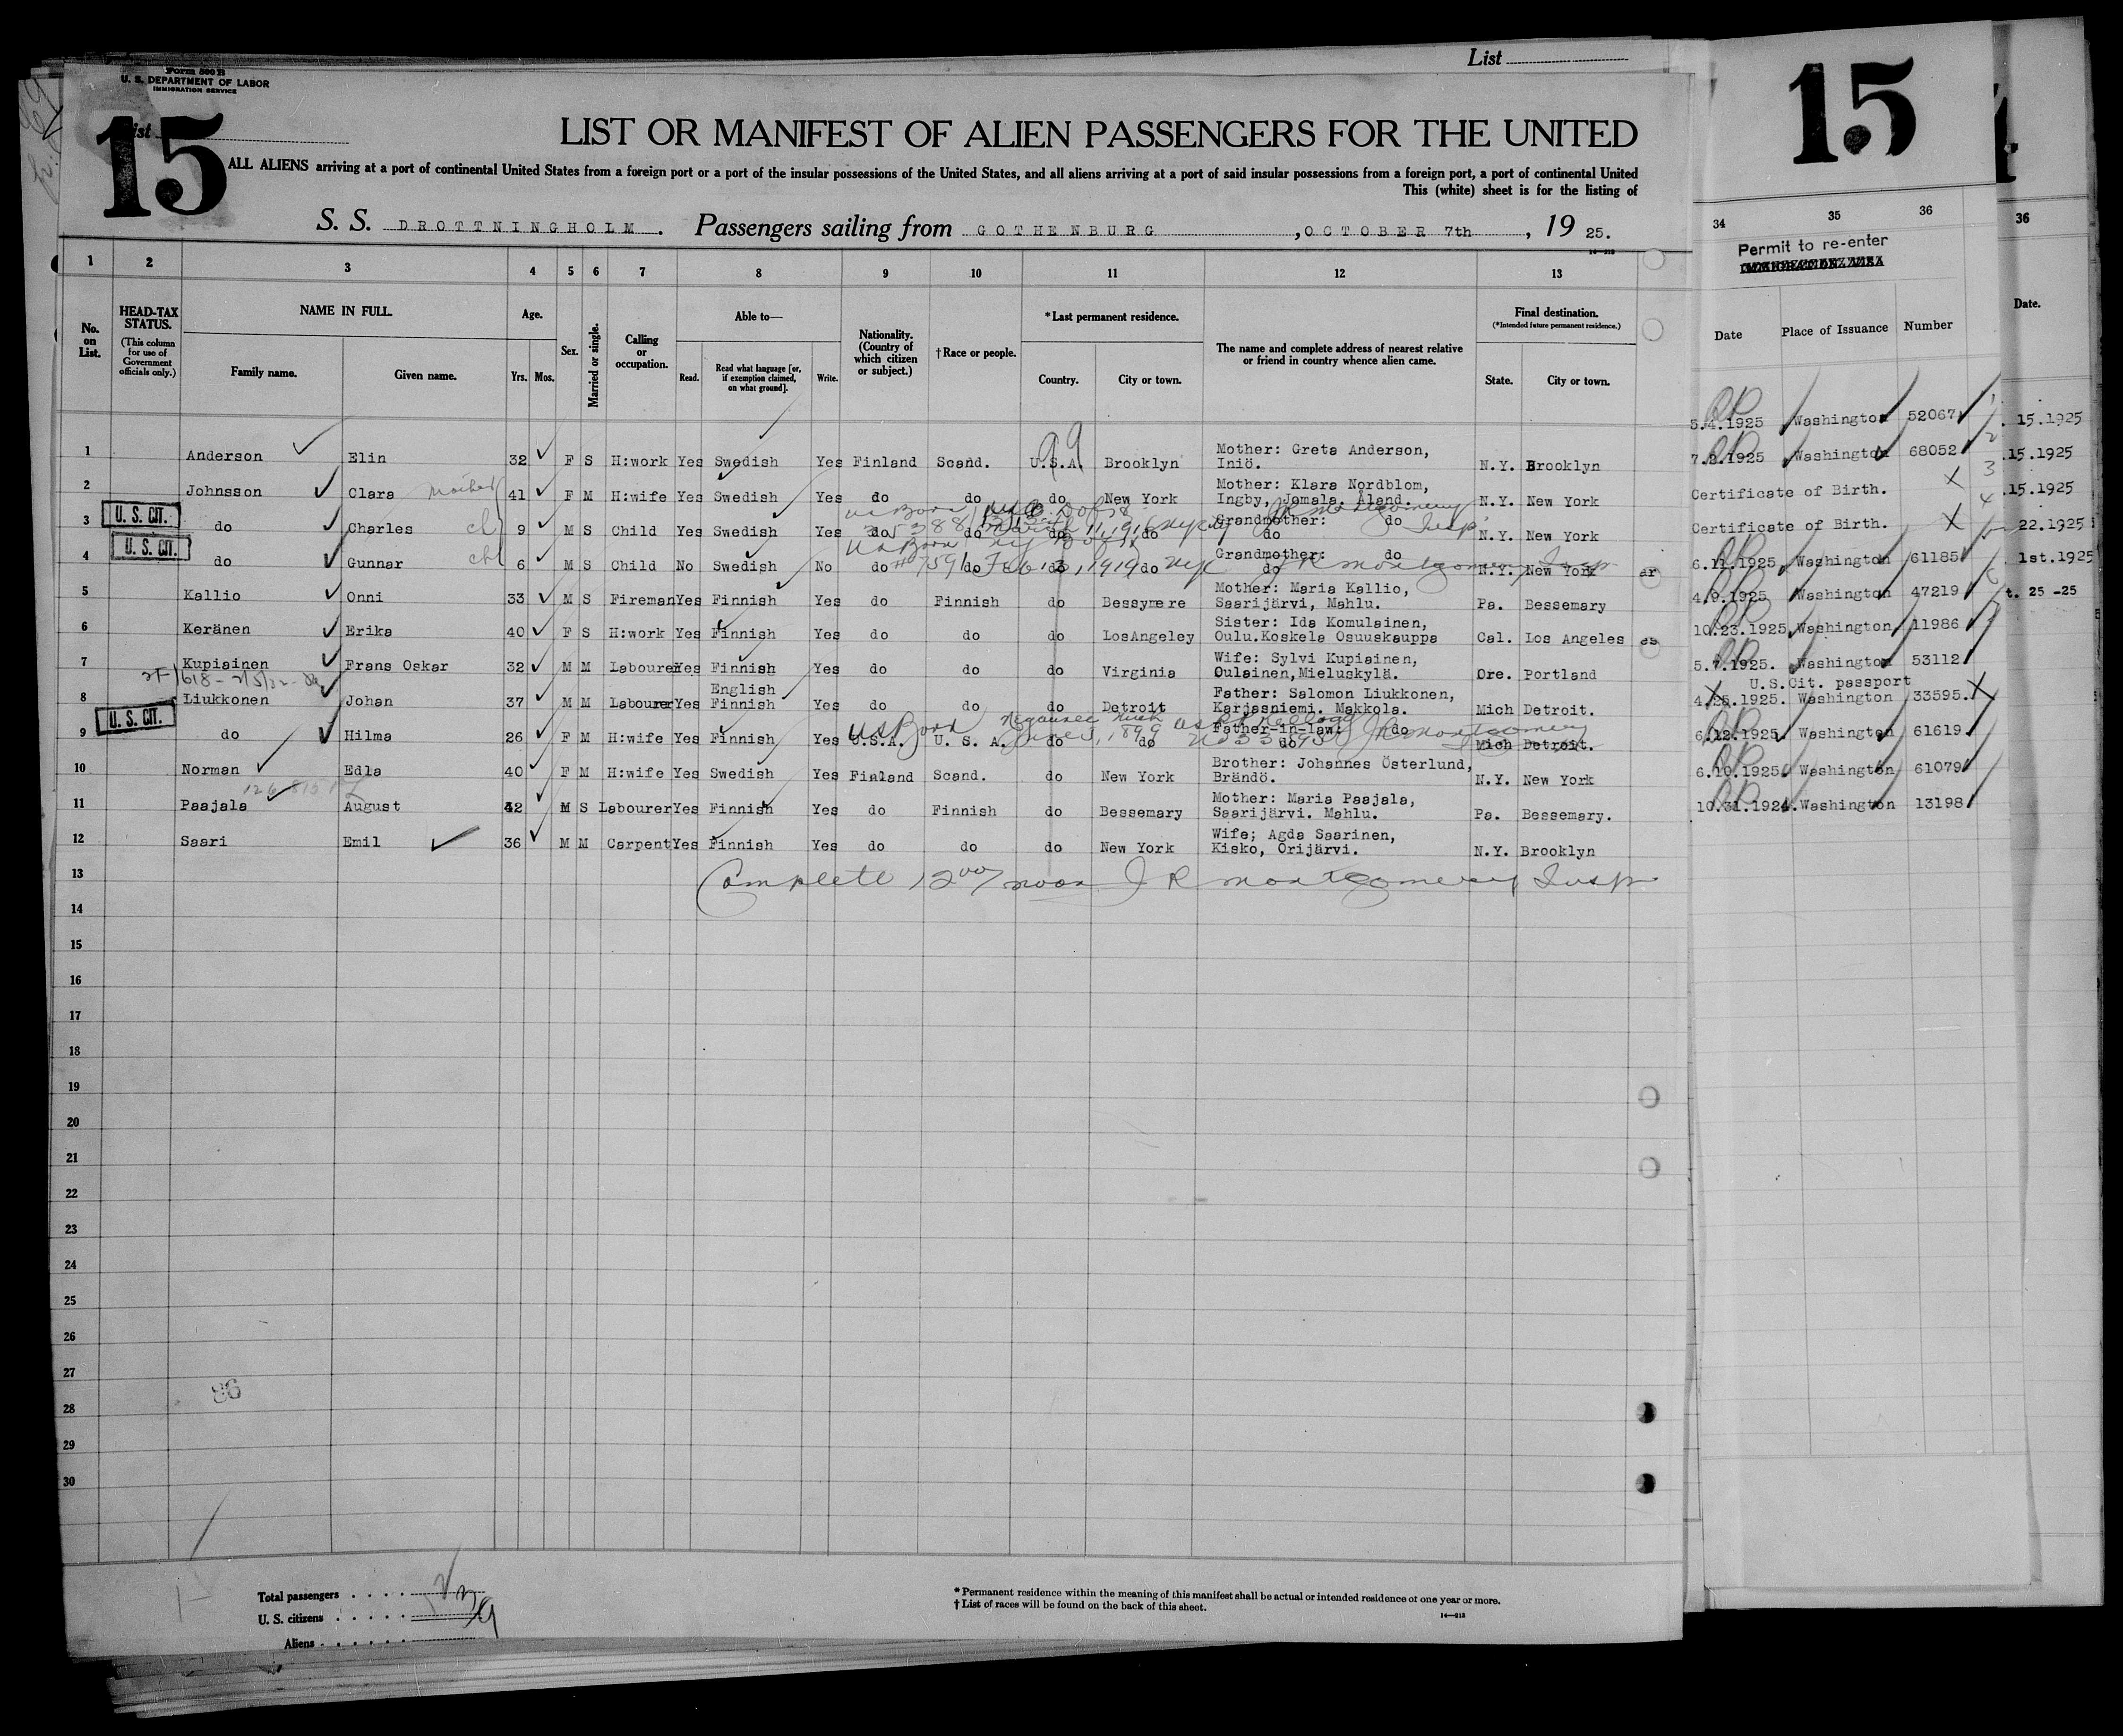 List
Form 500 B
U. S. DEPARTMENT OF LABOR
IMMIGRATION SERVICE
15
LIST OR MANIFEST OF ALIEN PASSENGERS FOR THE UNITED
ALL ALIENS arriving at a port of continental United States from a foreign port or a port of the insular possessions of the United States, and all aliens arriving at a port of said insular possessions from a foreign port, a port of continental United
This (white) sheet is for the listing of
S. S. DROTTNINGHOLM. Passengers sailing from GOTHENBURG, OCTOBER 7th, 19 25.
1 2 3 4 5 6 7 8 9 10 11 12 13
No. on List. HEAD-TAX STATUS. (This column for use of Government officials only.) NAME IN FULL. Family name. Given name. Age. Yrs. Mos. Sex. Married or single. Calling or occupation. Able to— Read. Read what language [or, if exemption claimed, on what ground]. Write. Nationality. (Country of which citizen or subject.) † Race or people. *Last permanent residence. Country. City or town. The name and complete address of nearest relative or friend in country whence alien came. Final destination. (*Intended future permanent residence.) State. City or town.
99
1 Anderson Elin 32 F S H:work Yes Swedish Yes Finland Scand. U.S.A. Brooklyn Mother: Greta Anderson, Iniö. N.Y. Brooklyn
2 Johnsson Clara mother 41 F M H:wife Yes Swedish Yes do do do New York Mother: Klara Nordblom, Ingby, Jomala. Åland. N.Y. New York
U. S. CIT.
3 do Charles ch 9 M S Child Yes Swedish Yes do do do do Grandmother: do do N.Y. New York
U. S. CIT.
4 do Gunnar ch 6 M S Child No Swedish No do do do do Grandmother: do do N.Y. New York
Feb 13, 1919
5 Kallio Onni 33 M S Fireman Yes Finnish Yes do Finnish do Bessymere Mother: Maria Kallio, Saarijärvi, Mahlu. Pa. Bessemary
6 Keränen Erika 40 F S H:work Yes Finnish Yes do do do LosAngeley Sister: Ida Komulainen, Oulu.Koskela Osuuskauppa Cal. Los Angeles
7 Kupiainen Frans Oskar 32 M M Labourer Yes Finnish Yes do do do Virginia Wife: Sylvi Kupiainen, Oulainen,Mieluskylä. Ore. Portland
8 Liukkonen Johan 37 M M Labourer Yes English Finnish Yes do do do Detroit Father: Salomon Liukkonen, Karjasniemi. Makkola. Mich Detroit.
U. S. CIT.
US Born Negaunee Mich
9 do Hilma 26 F M H:wife Yes Finnish Yes U.S.A. U. S. A. do do Father-in-law: do do Mich Detroit.
10 Norman Edla 40 F M H:wife Yes Swedish Yes Finland Scand. do New York Brother: Johannes Österlund, Brändö. N.Y. New York
11 Paajala August 42 M S Labourer Yes Finnish Yes do Finnish do Bessemary Mother: Maria Paajala, Saarijärvi. Mahlu. Pa. Bessemary.
12 Saari Emil 36 M M Carpent Yes Finnish Yes do do do New York Wife; Agda Saarinen, Kisko, Orijärvi. N.Y. Brooklyn
13 Complete 12 00/ noon J R Montgomery Insp
14
15
16
17
18
19
20
21
22
23
24
25
26
27
86
28
29
30
Total passengers
U. S. citizens
Aliens
* Permanent residence within the meaning of this manifest shall be actual or intended residence of one year or more.
† List of races will be found on the back of this sheet.
14—213
15
34 35 36
Permit to re-enter
Date Place of Issuance Number
5.4.1925 Washington 52067
7.8.1925 Washington 68052
Certificate of Birth.
Certificate of Birth.
6.11.1925 Washington 61185
4.9.1925 Washington 47219
10.23.1925 Washington 11986
5.7.1925. Washington 53112
U.S.Cit. passport
4.25.1925. Washington 33595.
6.12.1925 Washington 61619
6.10.1925 Washington 61079
10.31.1924. Washington 13198
36
Date.
15.1925
.15.1925
.15.1925
22.1925
1st.1925
t. 25 -25